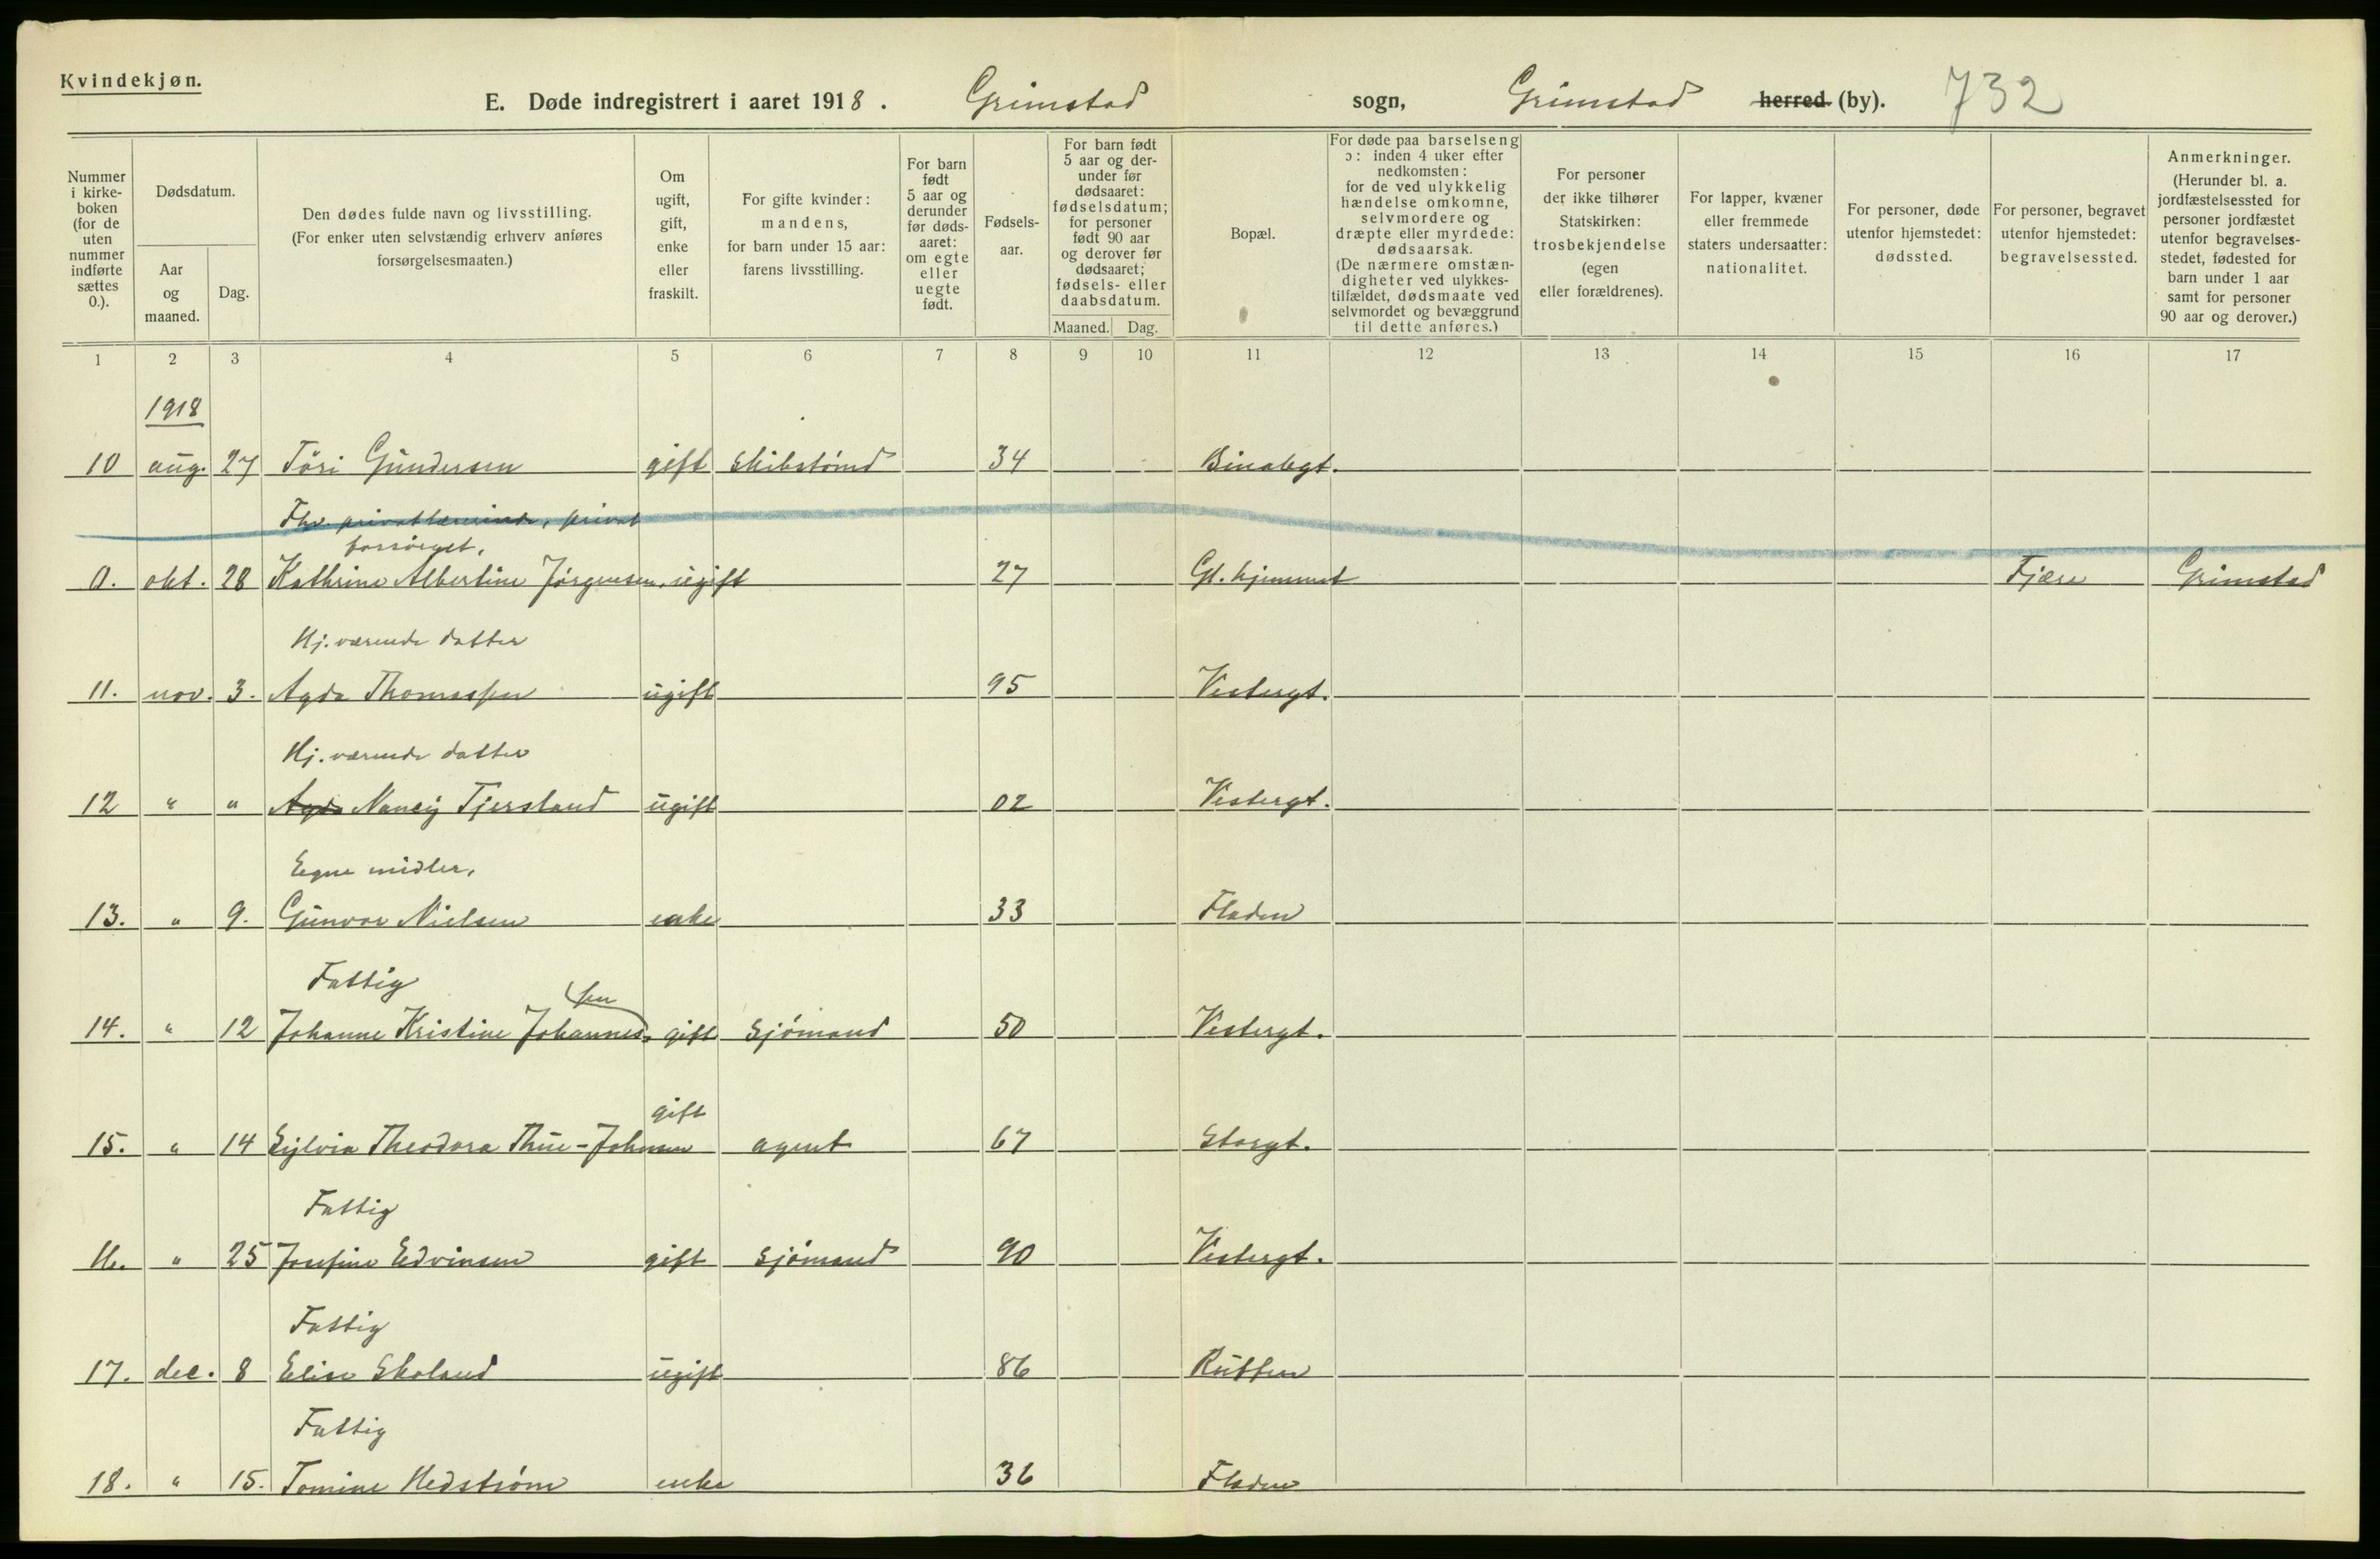 Kvindekjøn.
E. Døde indregistrert i aaret 1918. Grimstad sogn, Grimstad herred (by). 732
Nummer i kirkeboken (for de uten nummer indførte sættes 0.).
Dødsdatum.
Aar og maaned.
Dag.
Den dødes fulde navn og livsstilling. (For enker uten selvstændig erhverv anføres forsørgelsesmaaten.)
Om ugift, gift, enke eller fraskilt.
For gifte kvinder: mandens, for barn under 15 aar: farens livsstilling.
For barn født 5 aar og derunder før dødsaaret: om egte eller uegte født.
Fødselsaar.
For barn født 5 aar og derunder før dødsaaret: fødselsdatum; for personer født 90 aar og derover før dødsaaret; fødsels- eller daabsdatum.
Maaned. Dag.
Bopæl.
For døde paa barselseng ɔ: inden 4 uker efter nedkomsten: for de ved ulykkelig hændelse omkomne, selvmordere og dræpte eller myrdede: dødsaarsak. (De nærmere omstændigheter ved ulykkestilfældet, dødsmaate ved selvmordet og bevæggrund til dette anføres.)
For personer der ikke tilhører Statskirken: trosbekjendelse (egen eller forældrenes).
For lapper, kvæner eller fremmede staters undersaatter: nationalitet.
For personer, døde utenfor hjemstedet: dødssted.
For personer, begravet utenfor hjemstedet: begravelsessted.
Anmerkninger. (Herunder bl. a. jordfæstelsessted for personer jordfæstet utenfor begravelsesstedet, fødested for barn under 1 aar samt for personer 90 aar og derover.)
1 2 3 4 5 6 7 8 9 10 11 12 13 14 15 16 17
1918
10 aug. 27 Töri Gundersen gift skibstømd 34
Fhv. privatlærerinde, privat
forsörget,
0. okt. 28 Kathrine Albertine Jörgensen, ugift 27 Gl. hjemmet Fjære Grimstad
Hj. værende datter
11. nov. 3. Agda Thomassen ugift 95 Vestergt.
Hj. værende datter
12 " " Agda Nancy Tjersland ugift 02 Vestergt.
Egne midler,
13. " 9. Gunvor Nielsen enke 33 Fladen
Fattig
14. " 12 Johanne Kristine Johannessen gift Sjömand 50 Vestergt.
gift
15. " 14 Sylvia Theodora Thue-Johnsen agent 67 Storgt.
Fattig
16. " 25 Josefine Edvinsen gift Sjömand 90 Vestergt.
Fattig
17. dec. 8 Elise Skoland ugift 86
Fattig
18. " 15. Tomine Hedström enke 36 Fladen